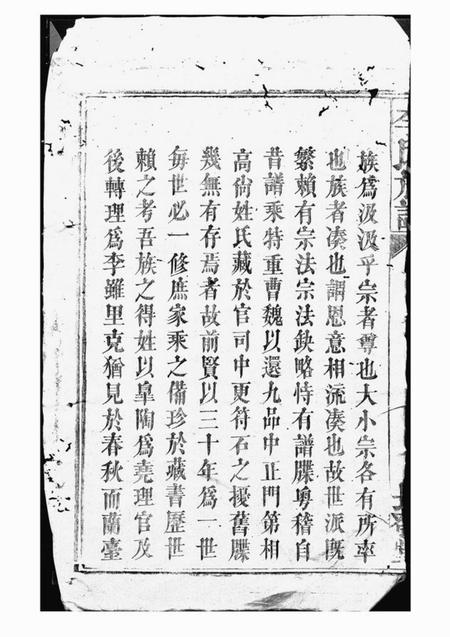 族爲汲汲乎宗者尊也大小宗各有所率
也族者凑也謂恩意相流凑也故世派既
繁賴有宗法宗法缺略恃有譜牒粵稽自
昔譜乘特重曹魏以還九品中正門第相
高尙姓氏藏於官司中更符石之擾舊牒
幾無有存焉者故前賢以三十年爲一世
每世必一修庶家乘之備珍於藏書歷世
賴之考吾族之得姓以臯陶爲堯理官及
後轉理爲李雖里克猶見於春秋而蘭臺
氏族譜